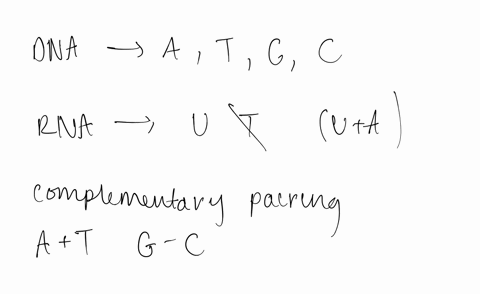 DNA → A, T, G, C
RNA → U T (U+A)
complementary pairing
A+T G-C